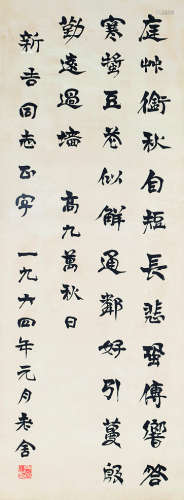 庭艸銜秋自短長悲蛩傳響答
寒螿豆花似解通鄰好引蔓殷
勤遠過墻 高九萬秋日
新吾同志正字 一九六四年元月老舍